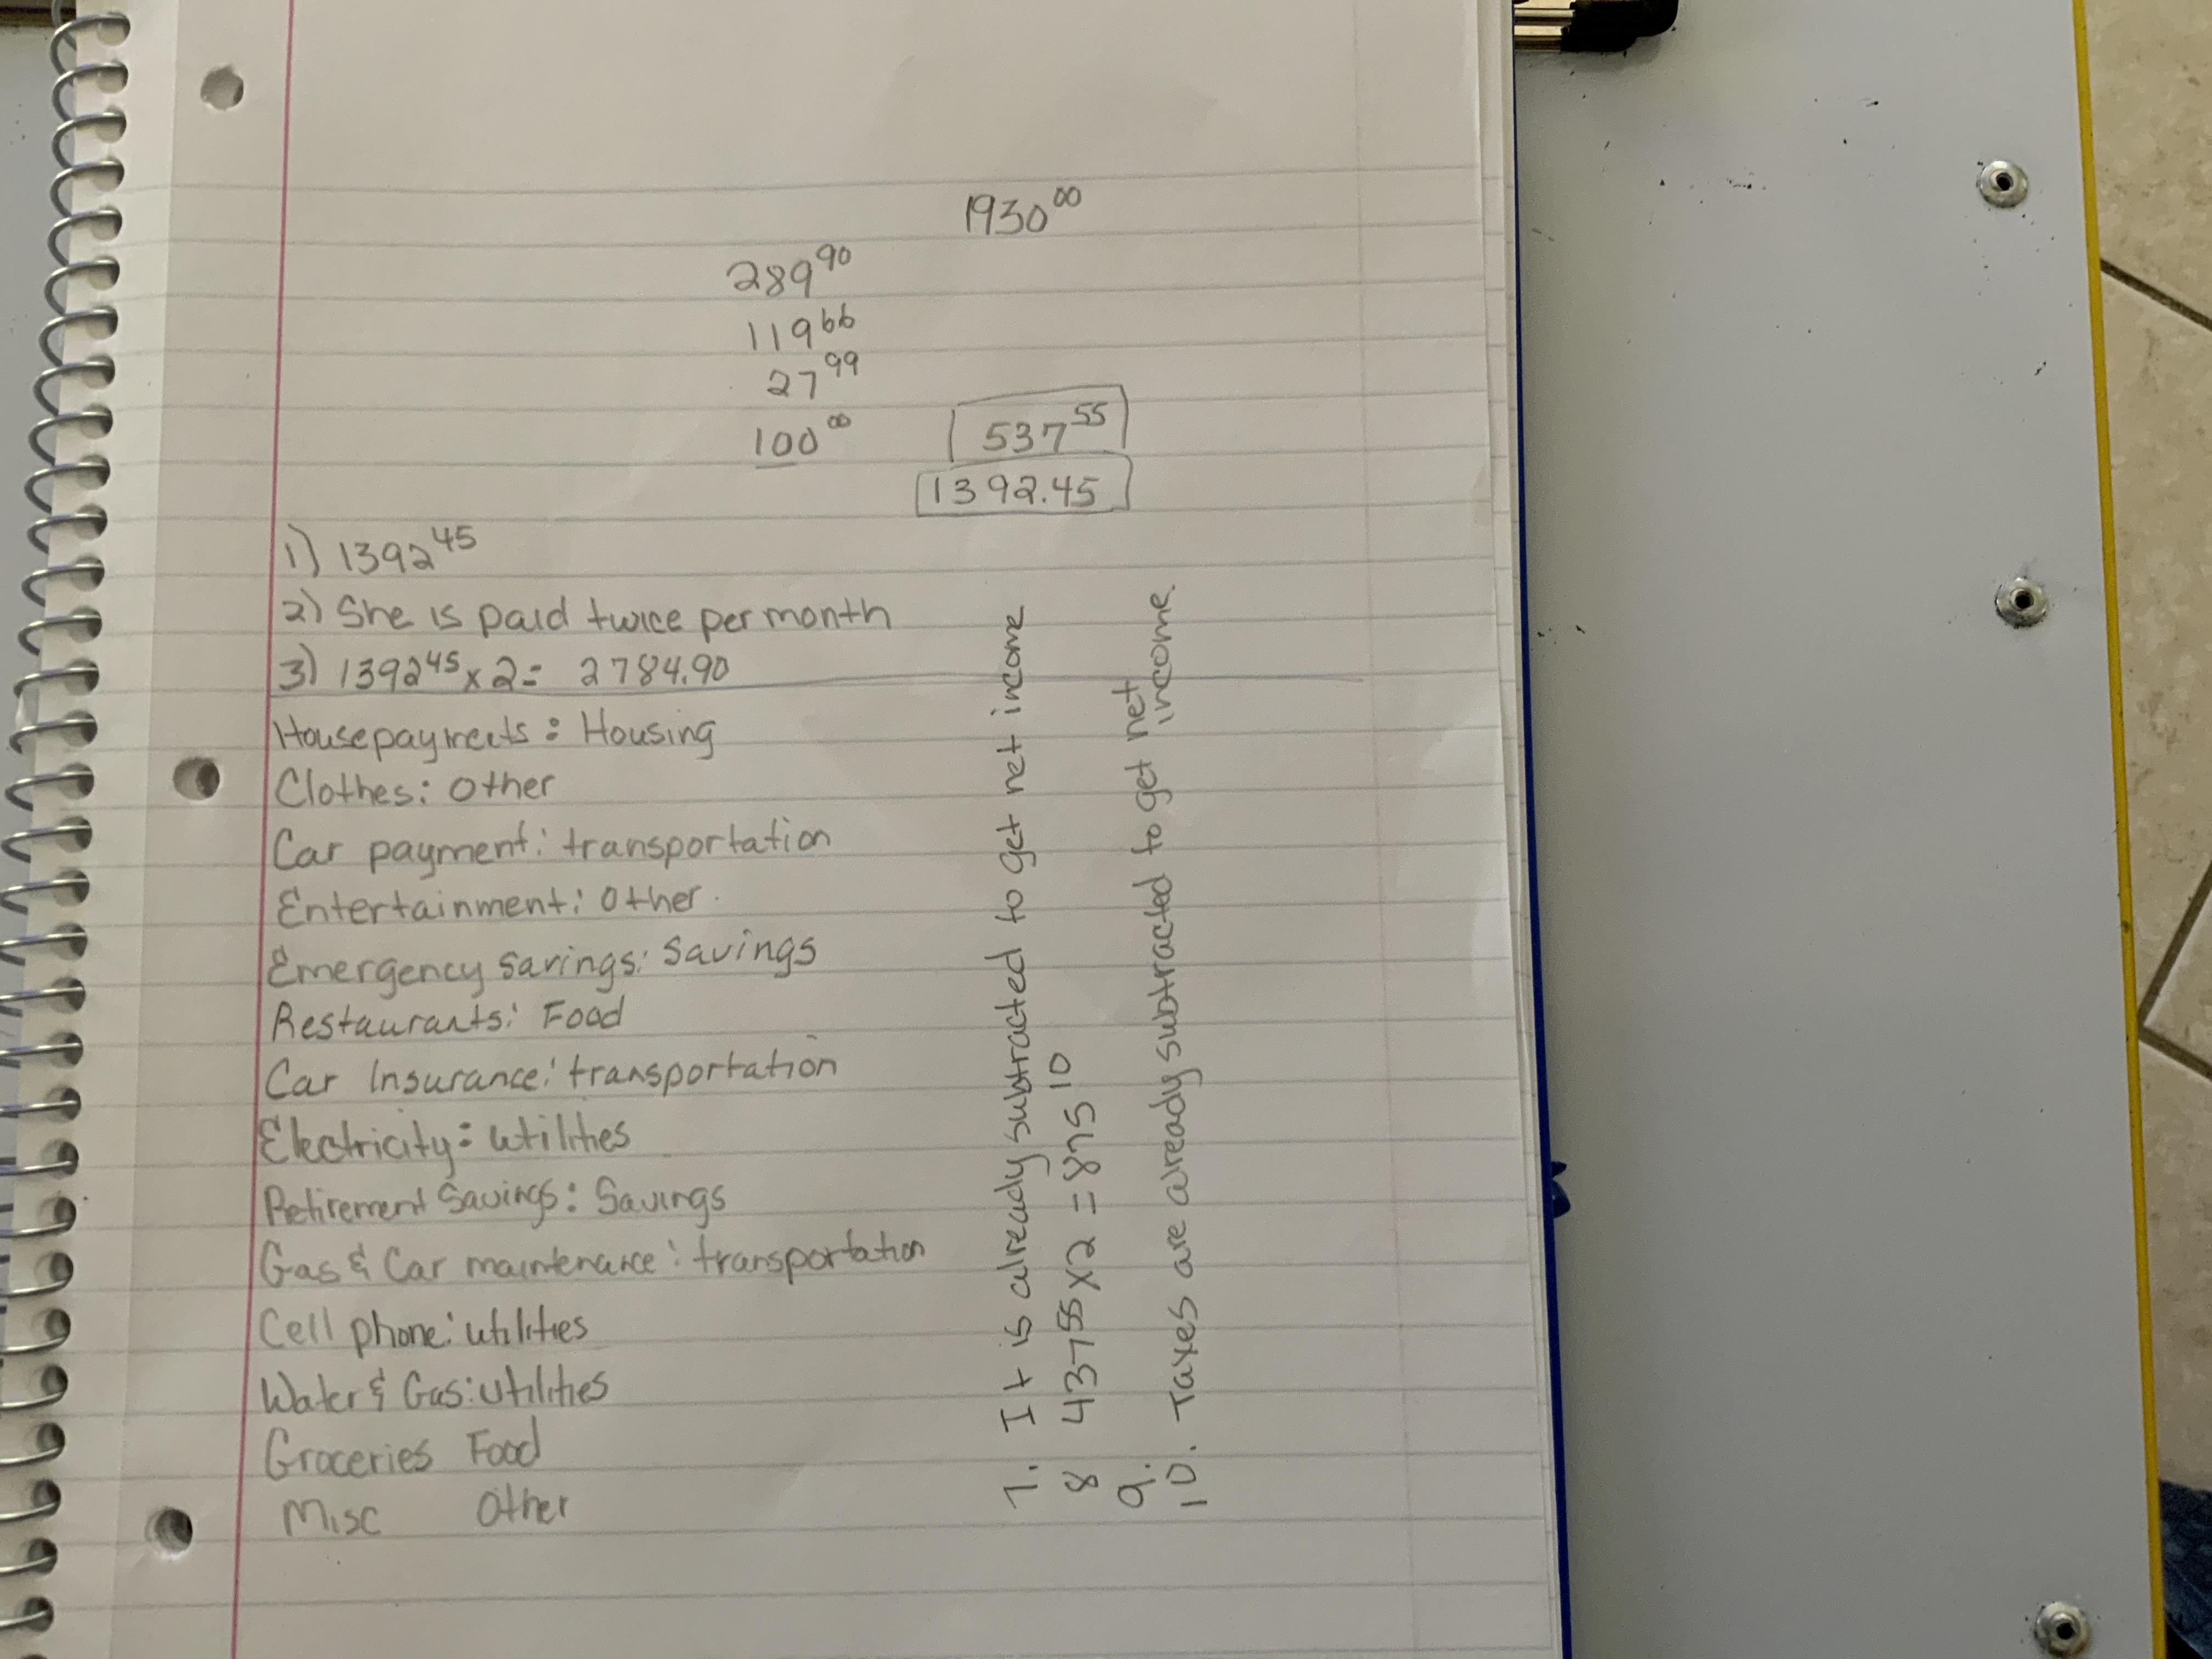 1930 00
289 90
119 66
27 99
100 00 537 55
1392.45
1) 1392 45
2) She is paid twice per month
3) 1392 45 x 2 = 2784.90
House payments : Housing
Clothes: Other
Car payment: transportation
Entertainment: Other.
Emergency savings: Savings
Restaurants: Food
Car Insurance: transportation
Electricity: utilities
Retirement Savings: Savings
Gas & Car maintenance: transportation
Cell phone: utilities
Water & Gas: utilities
Groceries Food
Misc Other
7. It is already subtracted to get net income
8 437 55 x 2 = 875 10
9.
10. Taxes are already subtracted to get net
income.